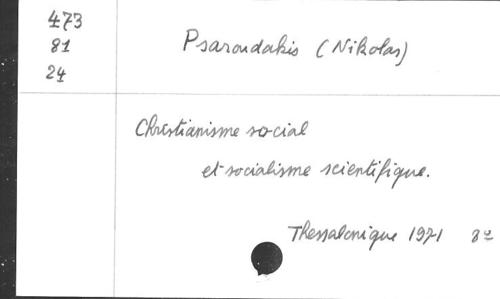 473
81
24
Psaroudakis (Nikolas)
Christianisme social
et socialisme scientifique.
Thessalonique 1971 8º